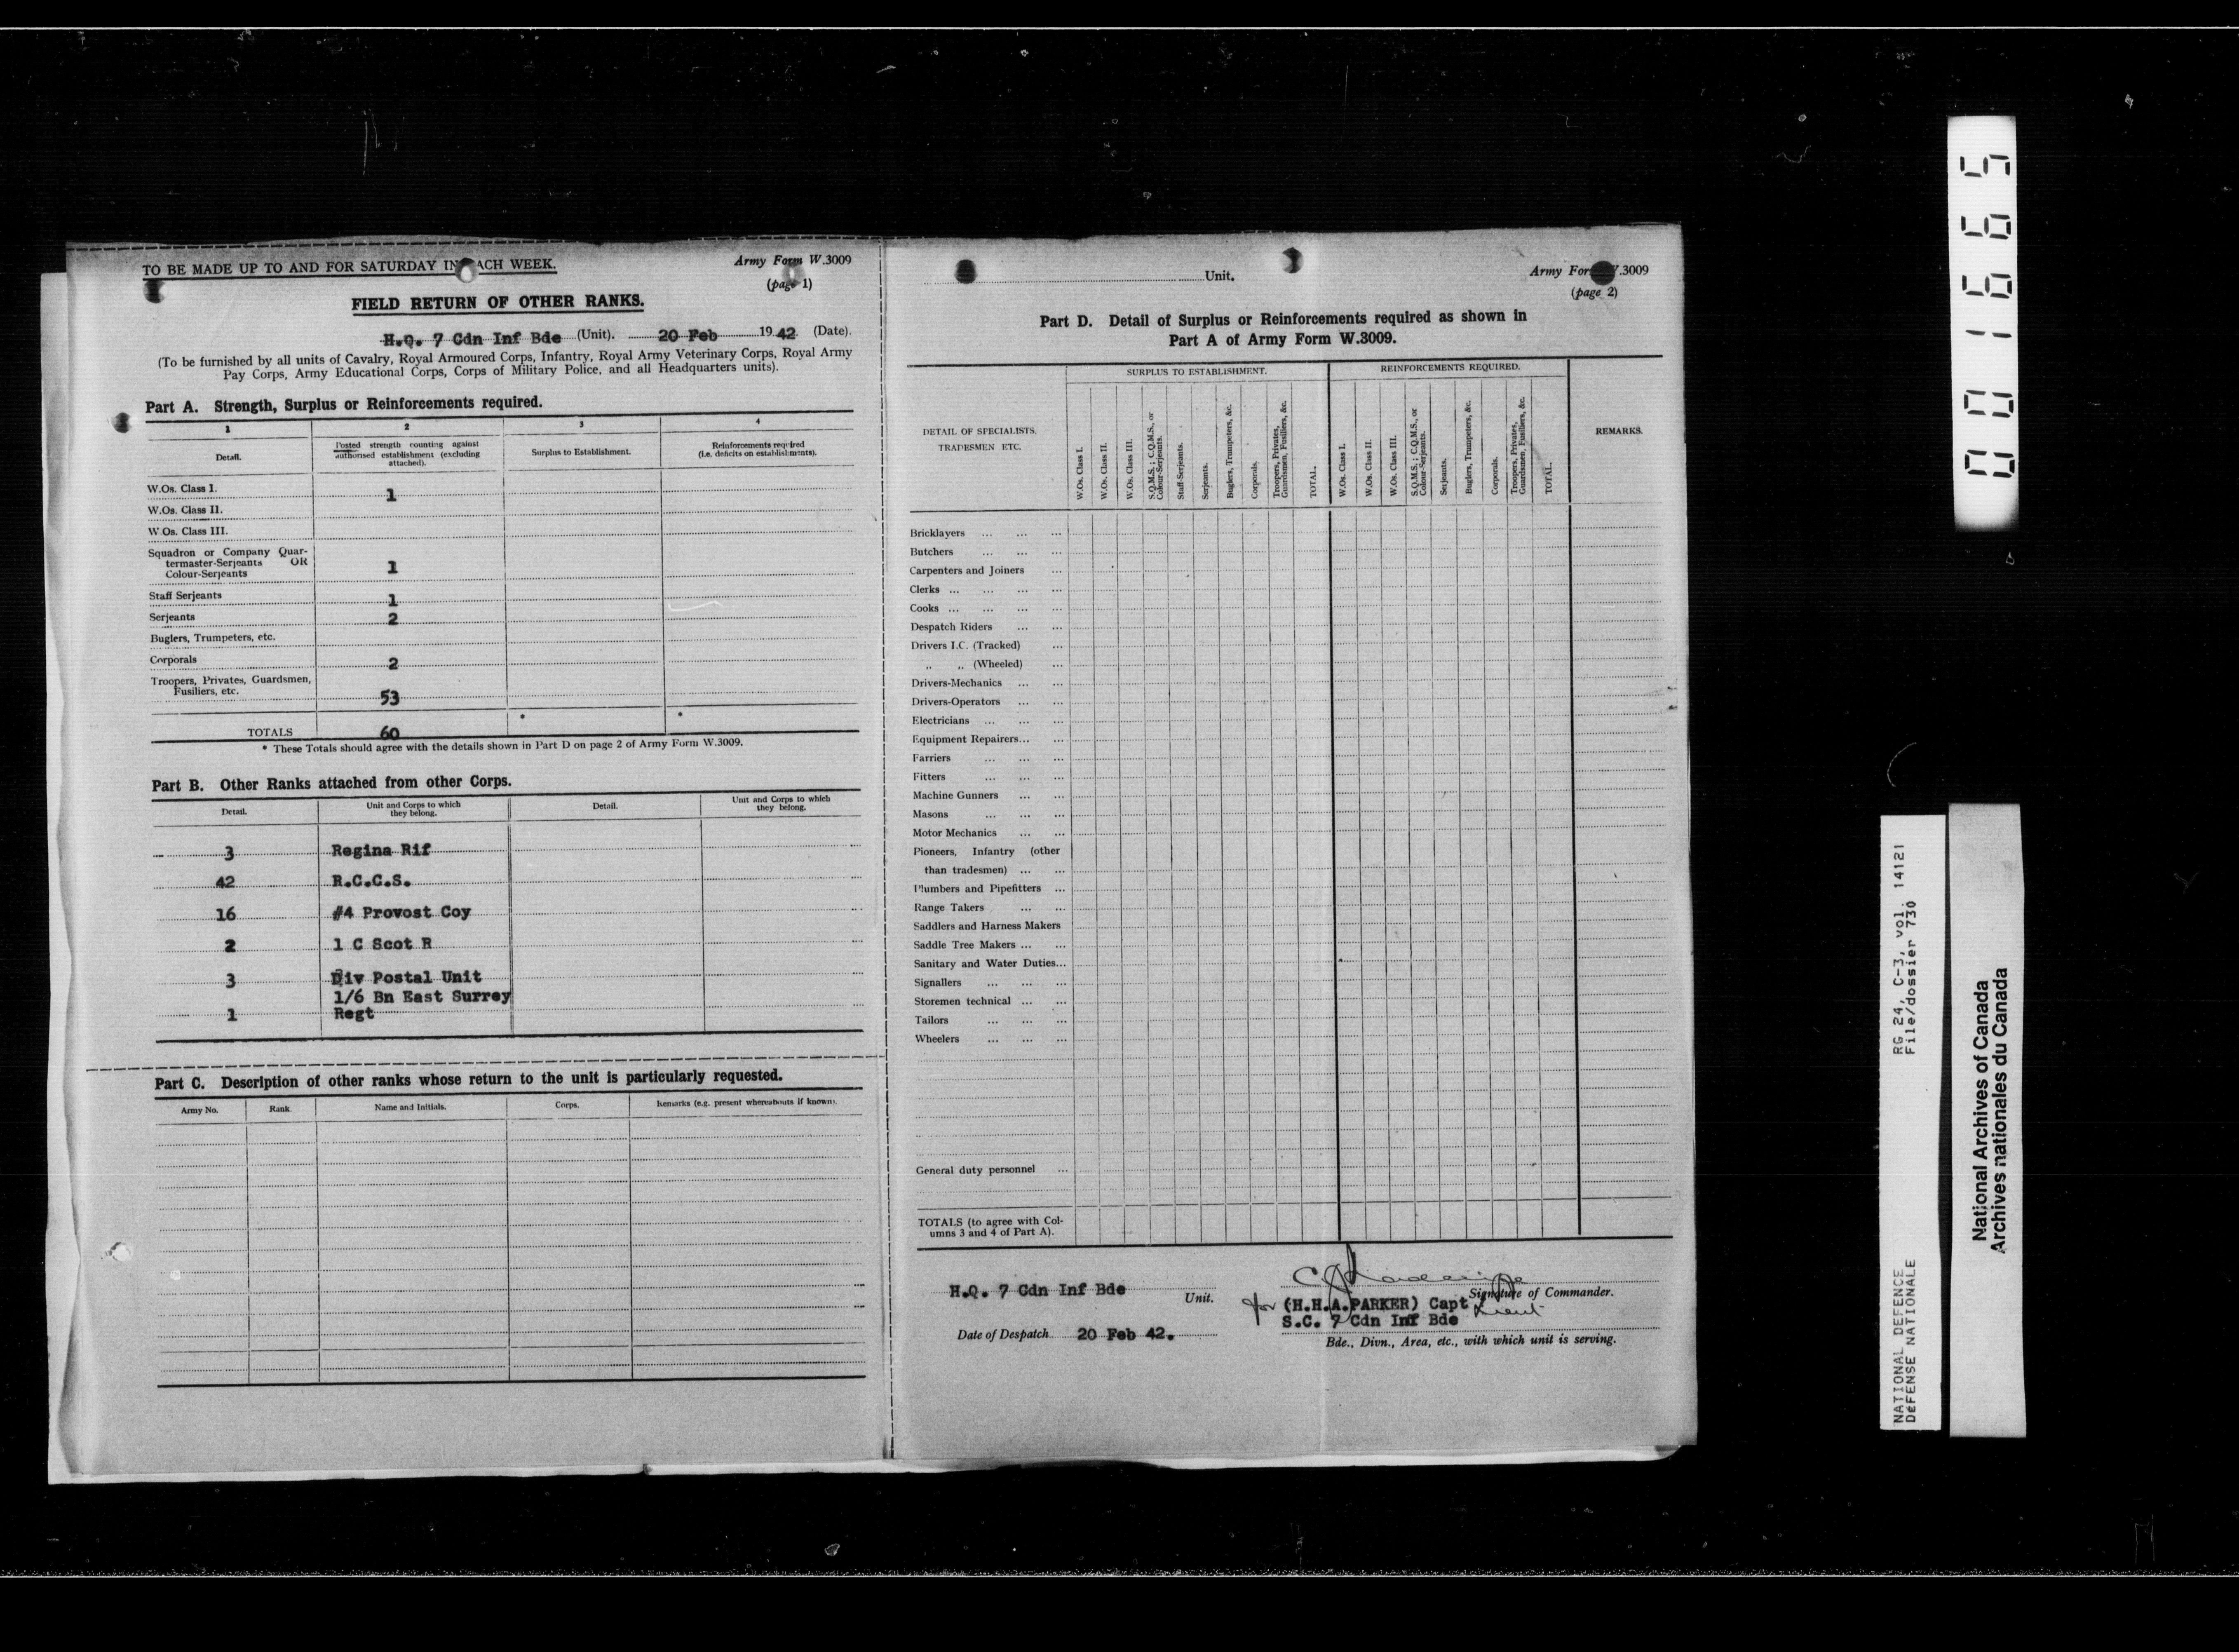 TO BE MADE UP TO AND FOR SATURDAY IN EACH WEEK.
Army Form W.3009
(page 1)
FIELD RETURN OF OTHER RANKS.
H.Q. 7 Cdn Inf Bde (Unit). 20 Feb 1942 (Date).
(To be furnished by all units of Cavalry, Royal Armoured Corps, Infantry, Royal Army Veterinary Corps, Royal Army
Pay Corps, Army Educational Corps, Corps of Military Police, and all Headquarters units).
Part A. Strength, Surplus or Reinforcements required.
1 2 3 4
Detail. Posted strength counting against authorised establishment (excluding attached). Surplus to Establishment. Reinforcements required (i.e. deficits on establishments).
W.Os. Class I. 1
W.Os. Class II.
W.Os. Class III.
Squadron or Company Quar-
termaster-Serjeants OR
Colour-Serjeants 1
Staff Serjeants 1
Serjeants 2
Buglers, Trumpeters, etc.
Corporals 2
Troopers, Privates, Guardsmen,
Fusiliers, etc. 53
* *
TOTALS 60
* These Totals should agree with the details shown in Part D on page 2 of Army Form W.3009.
Part B. Other Ranks attached from other Corps.
Detail. Unit and Corps to which they belong. Detail. Unit and Corps to which they belong.
3 Regina Rif
42 R.C.C.S.
16 #4 Provost Coy
2 1 C Scot R
3 Div Postal Unit
1/6 Bn East Surrey
1 Regt
Part C. Description of other ranks whose return to the unit is particularly requested.
Army No. Rank. Name and Initials. Corps. Remarks (e.g. present whereabouts if known).
Unit.
Army Form W.3009
(page 2)
Part D. Detail of Surplus or Reinforcements required as shown in
Part A of Army Form W.3009.
DETAIL OF SPECIALISTS, TRADESMEN ETC.
SURPLUS TO ESTABLISHMENT.
W.Os. Class I.
W.Os. Class II.
W.Os. Class III.
S.Q.M.S.; C.Q.M.S., or Colour-Serjeants.
Staff-Serjeants.
Serjeants.
Buglers, Trumpeters, &c.
Corporals.
Troopers, Privates, Guardsmen, Fusiliers, &c.
TOTAL.
REINFORCEMENTS REQUIRED.
W.Os. Class I.
W.Os. Class II.
W.Os. Class III.
S.Q.M.S.; C.Q.M.S., or Colour-Serjeants.
Serjeants.
Buglers, Trumpeters, &c.
Corporals.
Troopers, Privates, Guardsmen, Fusiliers, &c.
TOTAL.
REMARKS.
Bricklayers ... ... ...
Butchers ... ... ...
Carpenters and Joiners ...
Clerks ... ... ... ...
Cooks ... ... ... ...
Despatch Riders ... ...
Drivers I.C. (Tracked) ...
,, ,, (Wheeled) ...
Drivers-Mechanics ... ...
Drivers-Operators ... ...
Electricians ... ... ...
Equipment Repairers... ...
Farriers ... ... ...
Fitters ... ... ...
Machine Gunners ... ...
Masons ... ... ...
Motor Mechanics ... ...
Pioneers, Infantry (other
than tradesmen) ... ...
Plumbers and Pipefitters ...
Range Takers ... ...
Saddlers and Harness Makers
Saddle Tree Makers ... ...
Sanitary and Water Duties...
Signallers ... ... ...
Storemen technical ... ...
Tailors ... ... ...
Wheelers ... ... ...
General duty personnel ...
TOTALS (to agree with Col-
umns 3 and 4 of Part A).
H.Q. 7 Cdn Inf Bde Unit.
Signature of Commander.
for (H.H.A. PARKER) Capt Lieut
S.C. 7 Cdn Inf Bde
Date of Despatch 20 Feb 42.
Bde., Divn., Area, etc., with which unit is serving.
001665
NATIONAL DEFENCE RG 24, C-3, vol. 14121
DéFENSE NATIONALE File/dossier 730
National Archives of Canada
Archives nationales du Canada